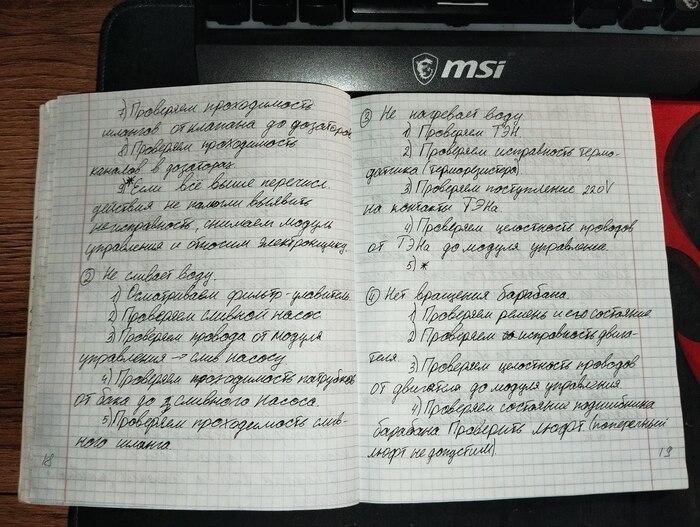 msi
7) Проверяем проходимость
шлангов от клапана до дозатора.
8) Проверяем проходимость
каналов в дозаторах.
9)* Если всё выше перечисл.
действия не помогли выявить
неисправность, снимаем модуль
управления и относим электронщику.
② Не сливает воду.
1) Осматриваем фильтр-уловитель
2) Проверяем сливной насос
3) Проверяем провода от модуля
управления → слив насосу
4) Проверяем проходимость патрубков
от бака до сливного насоса.
5) Проверяем проходимость слив-
ного шланга.
18
③ Не нагревает воду
1) Проверяем ТЭН.
2) Проверяем исправность термо-
датчика (термерезистора).
3) Проверяем поступление 220V
на контакты ТЭНа
4) Проверяем целостность проводов
от ТЭНа до модуля управление
5) *
④ Нет вращения барабана.
1) Проверяем ремень и его состояние
2) Проверяем исправность двига-
теля.
3) Проверяем целостность проводов
от двигателя до модуля управления
4) Проверяем состояние подшипника
барабана. Проверить люфт (поперечный
люфт не допустим).
19